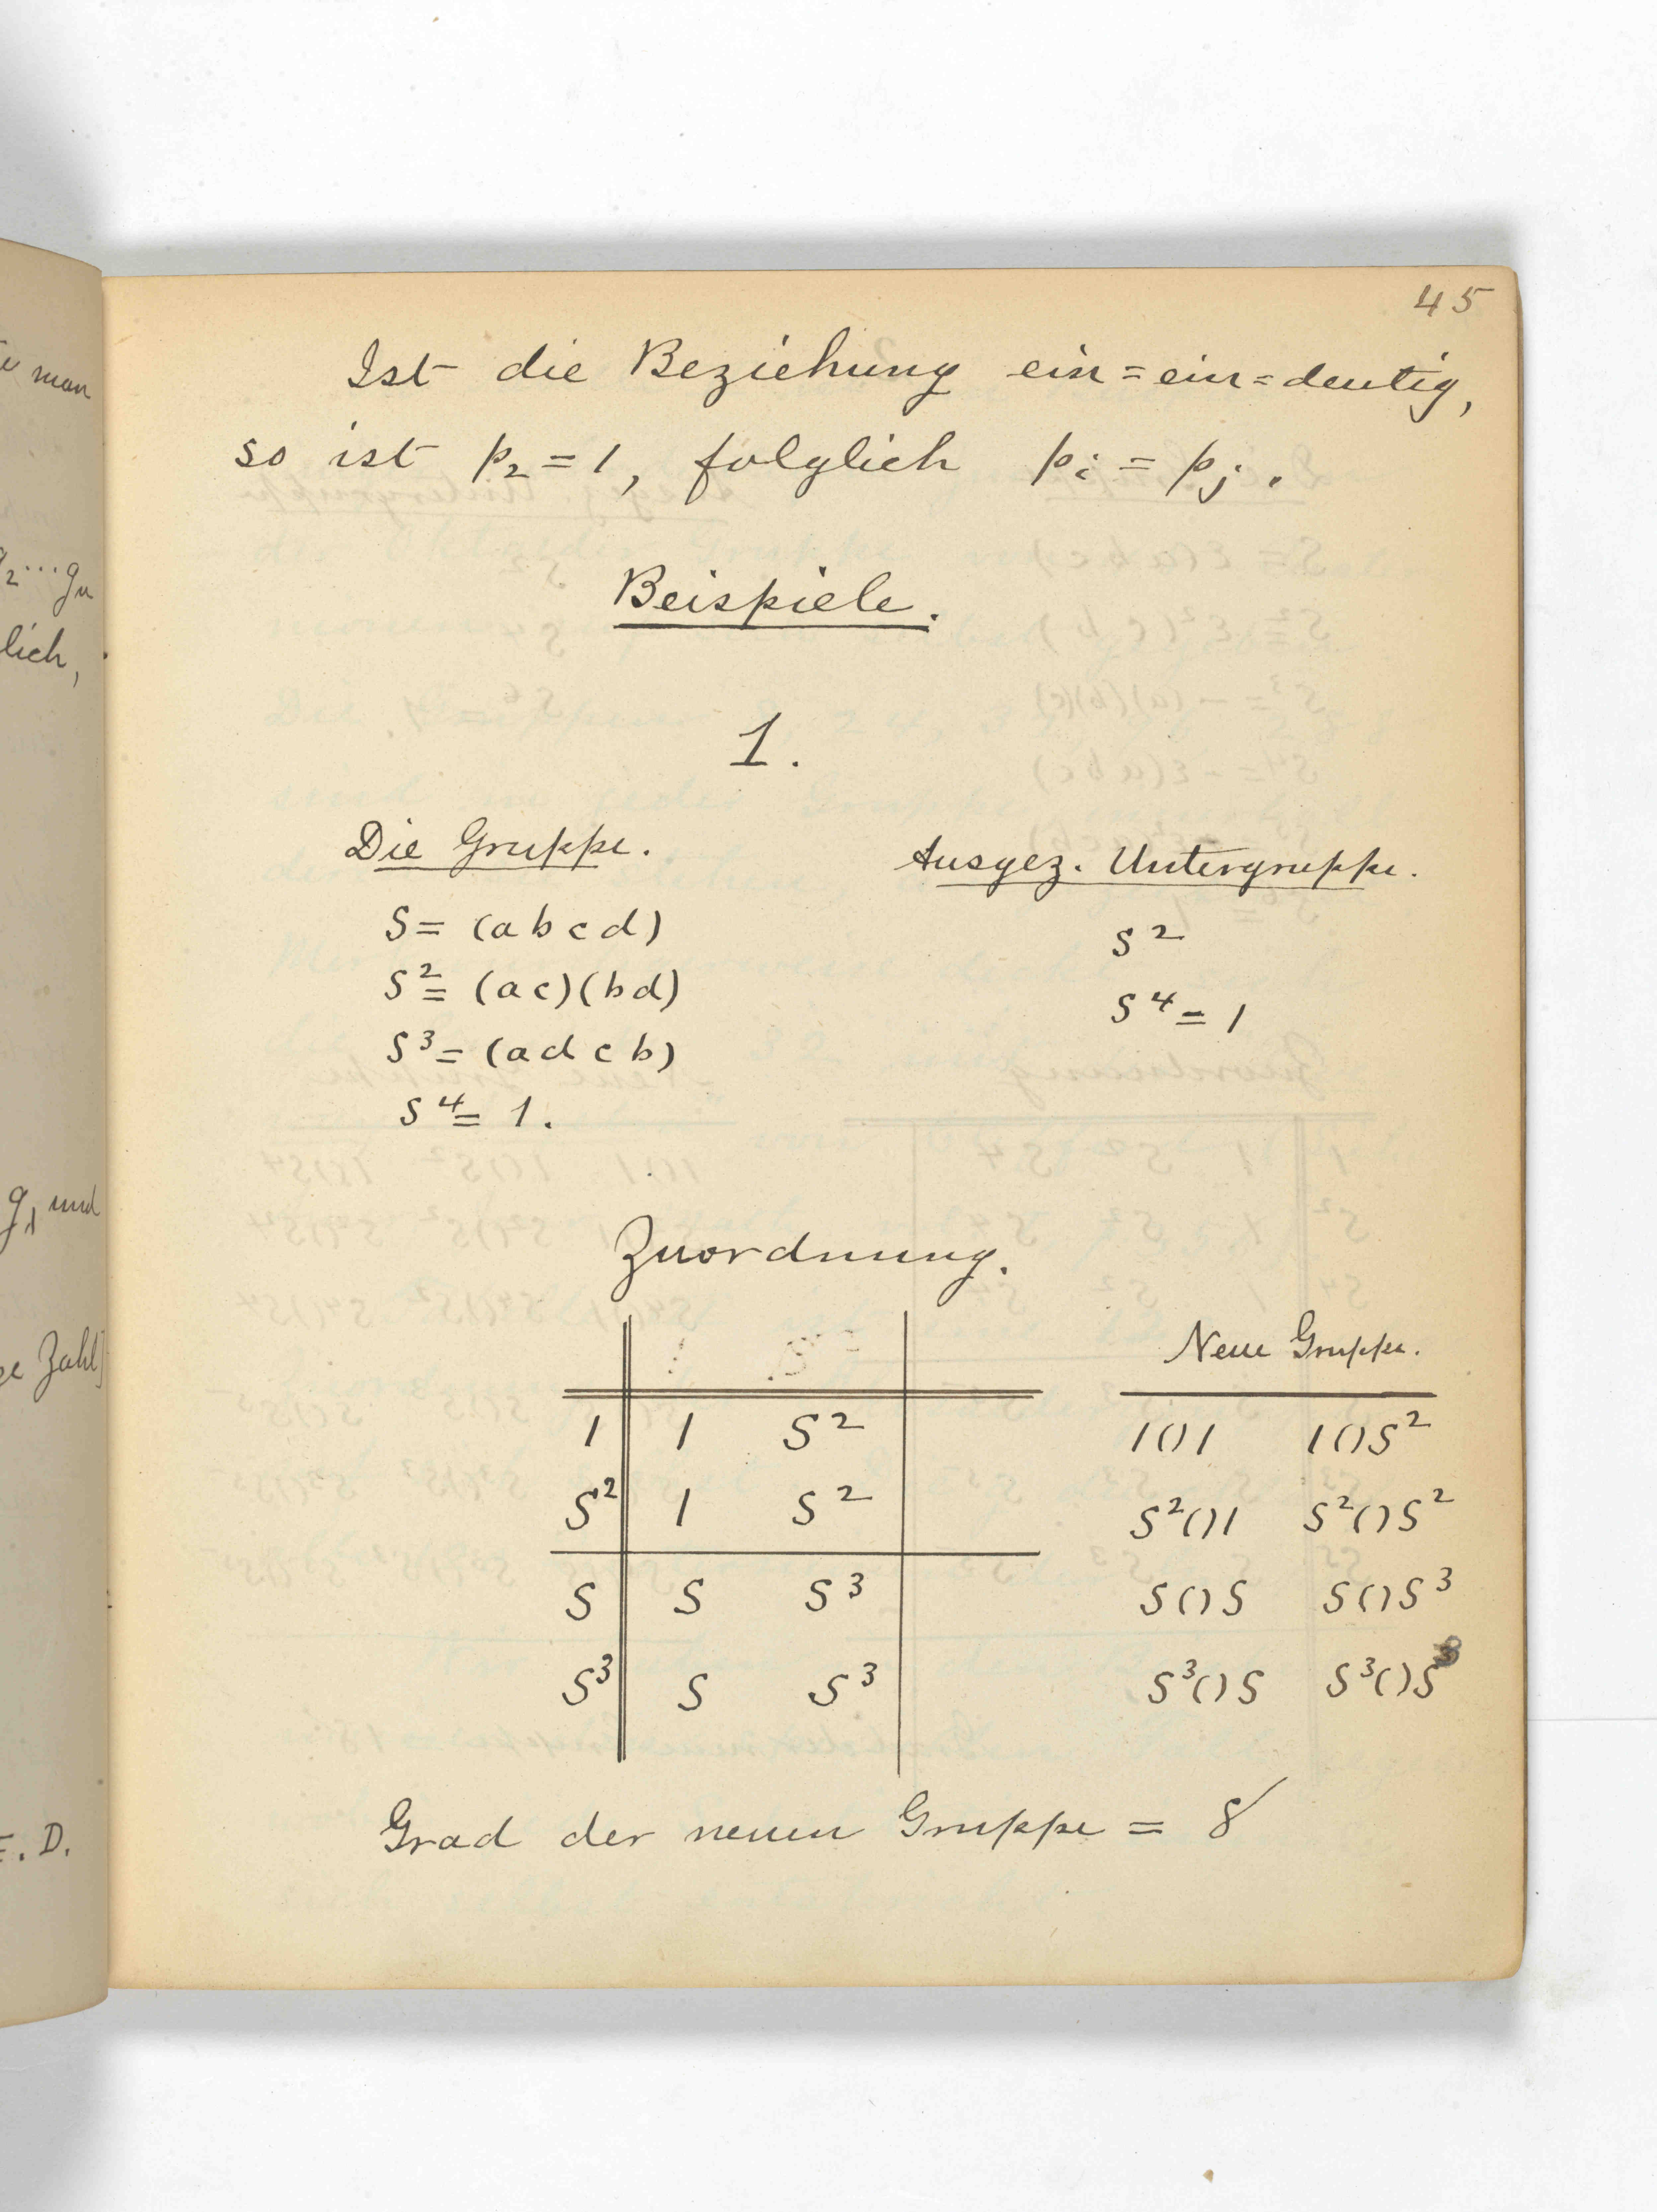 45
Ist die Beziehung ein=ein=deutig,
so ist p₂=1, folglich pᵢ = pⱼ.
Beispiele.
1.
Die Gruppe.
S = (a b c d)
S² = (a c)(b d)
S³ = (a d c b)
S⁴ = 1.
Ausgez. Untergruppe.
S²
S⁴ = 1
Zuordnung.
1 1 S²
S² 1 S²
S S S³
S³ S S³
Neue Gruppe.
1()1 1()S²
S²()1 S²()S²
S()S S()S³
S³()S S³()S³
Grad der neuen Gruppe = 8
e man
g₂...gn
lich,
g₁ und
ge Zahl]
E. D.